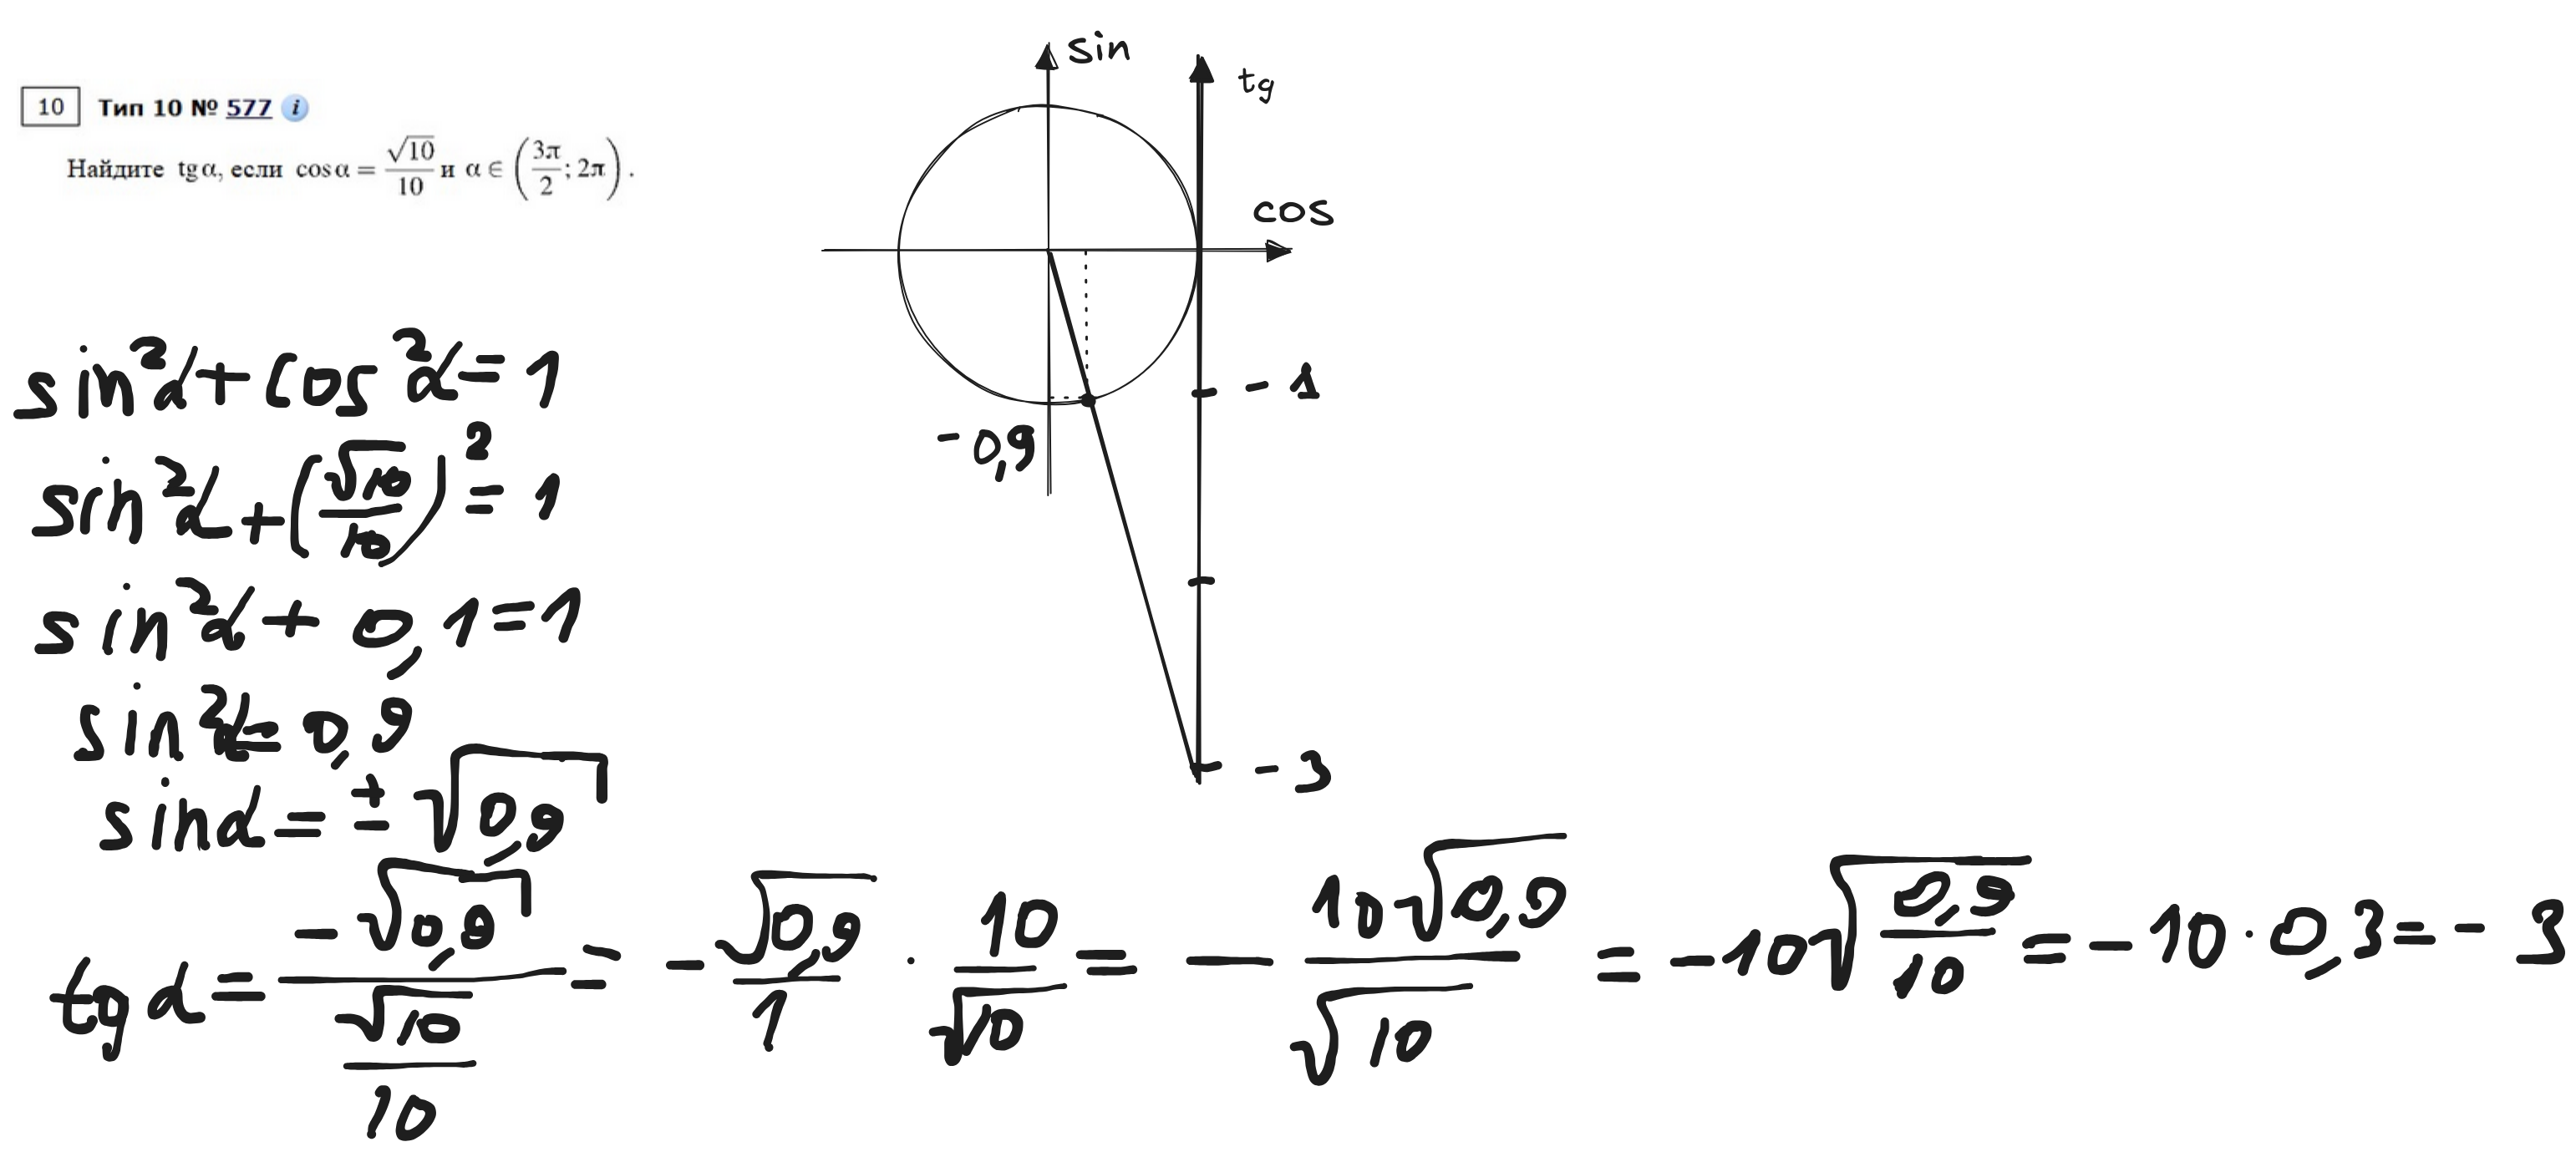 10 Тип 10 № 577 i
Найдите tg α, если cos α = √10/10 и α ∈ (3π/2; 2π).
sin
tg
cos
-1
-0,9
-3
sin²α + cos²α = 1
sin²α + (√10/10)² = 1
sin²α + 0,1 = 1
sin²α = 0,9
sinα = ± √0,9
tg α = -√0,9/(√10/10) = - √0,9/1 · 10/√10 = - 10√0,9/√10 = -10√(0,9/10) = -10 · 0,3 = -3